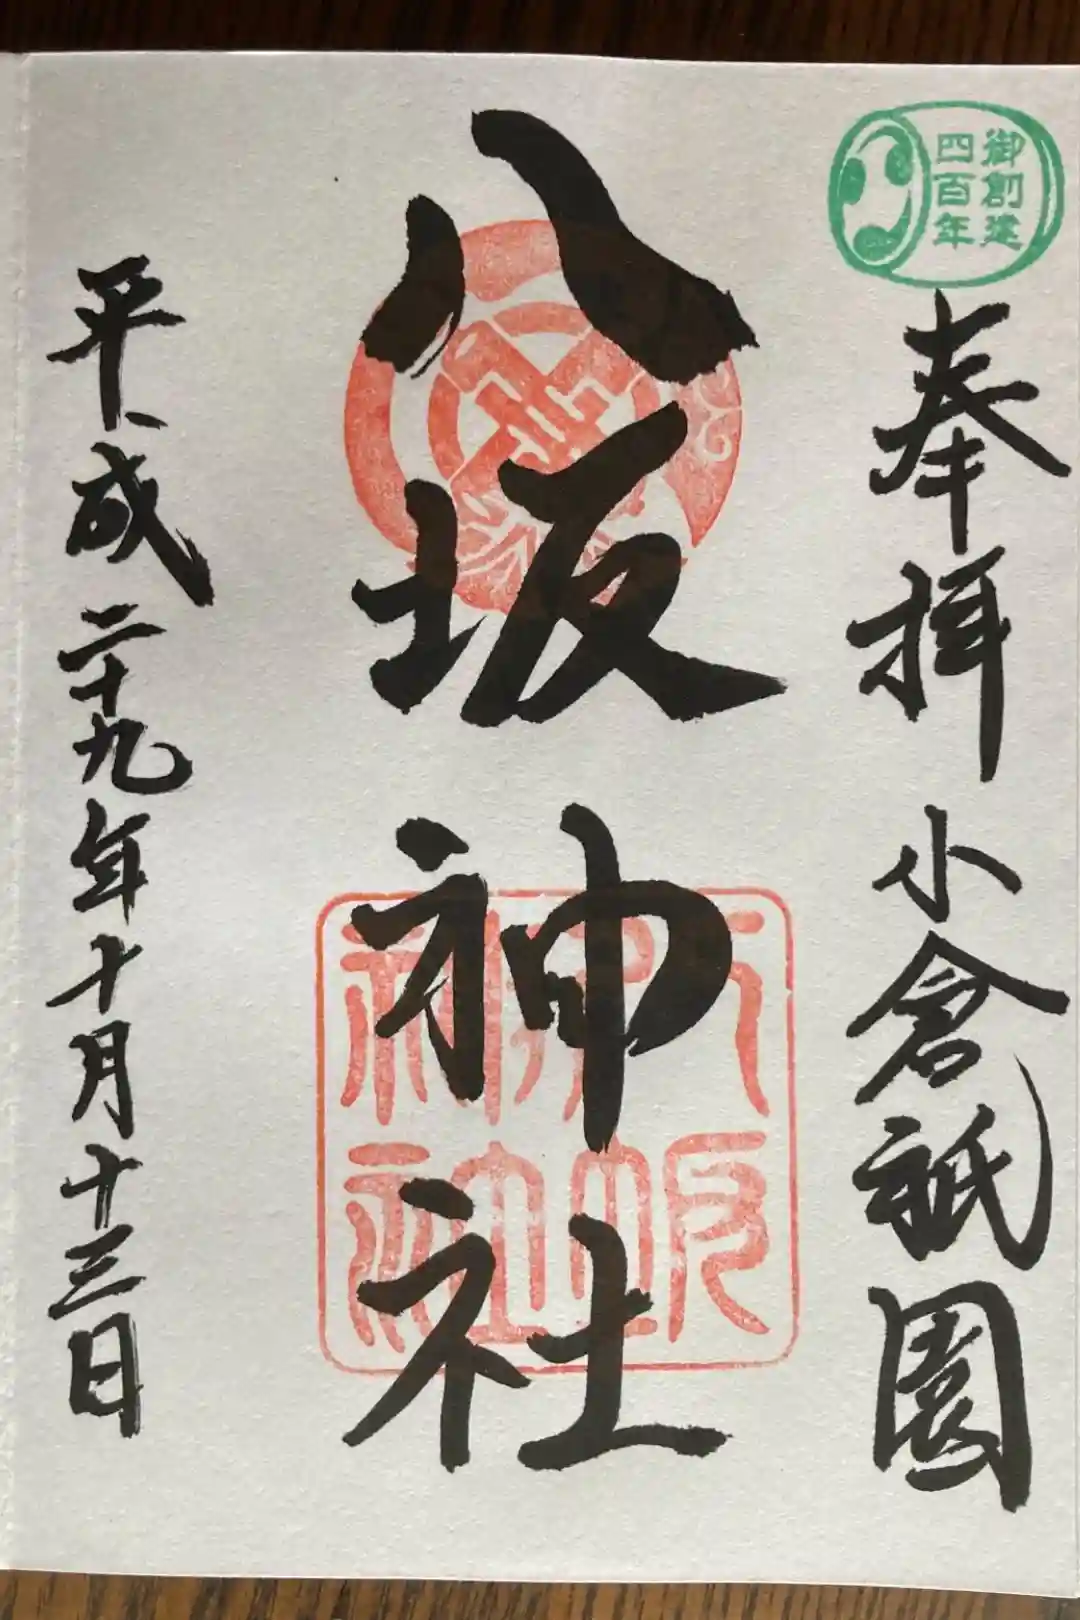 御創建
四百年
奉拝 小倉祇園
八坂神社
八坂神社
平成二十九年十月十三日